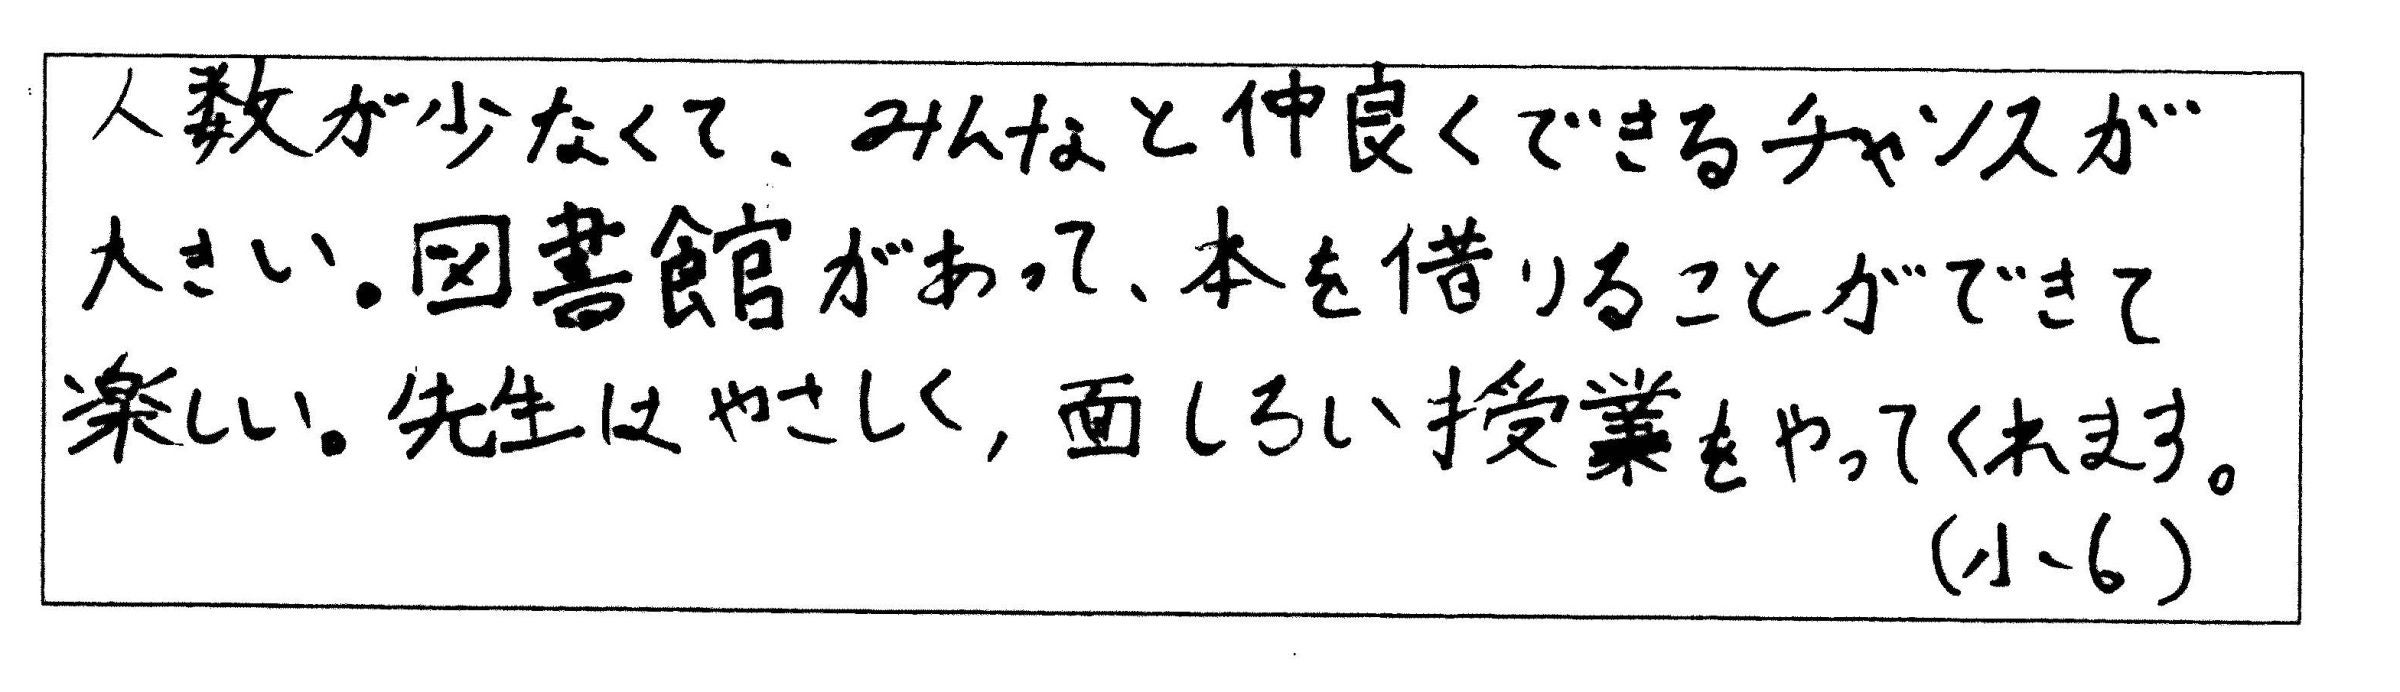 人数が少なくて、みんなと仲良くできるチャンスが
大きい。図書館があって、本を借りることができて
楽しい。先生はやさしく,面しろい授業をやってくれます。
(小6)